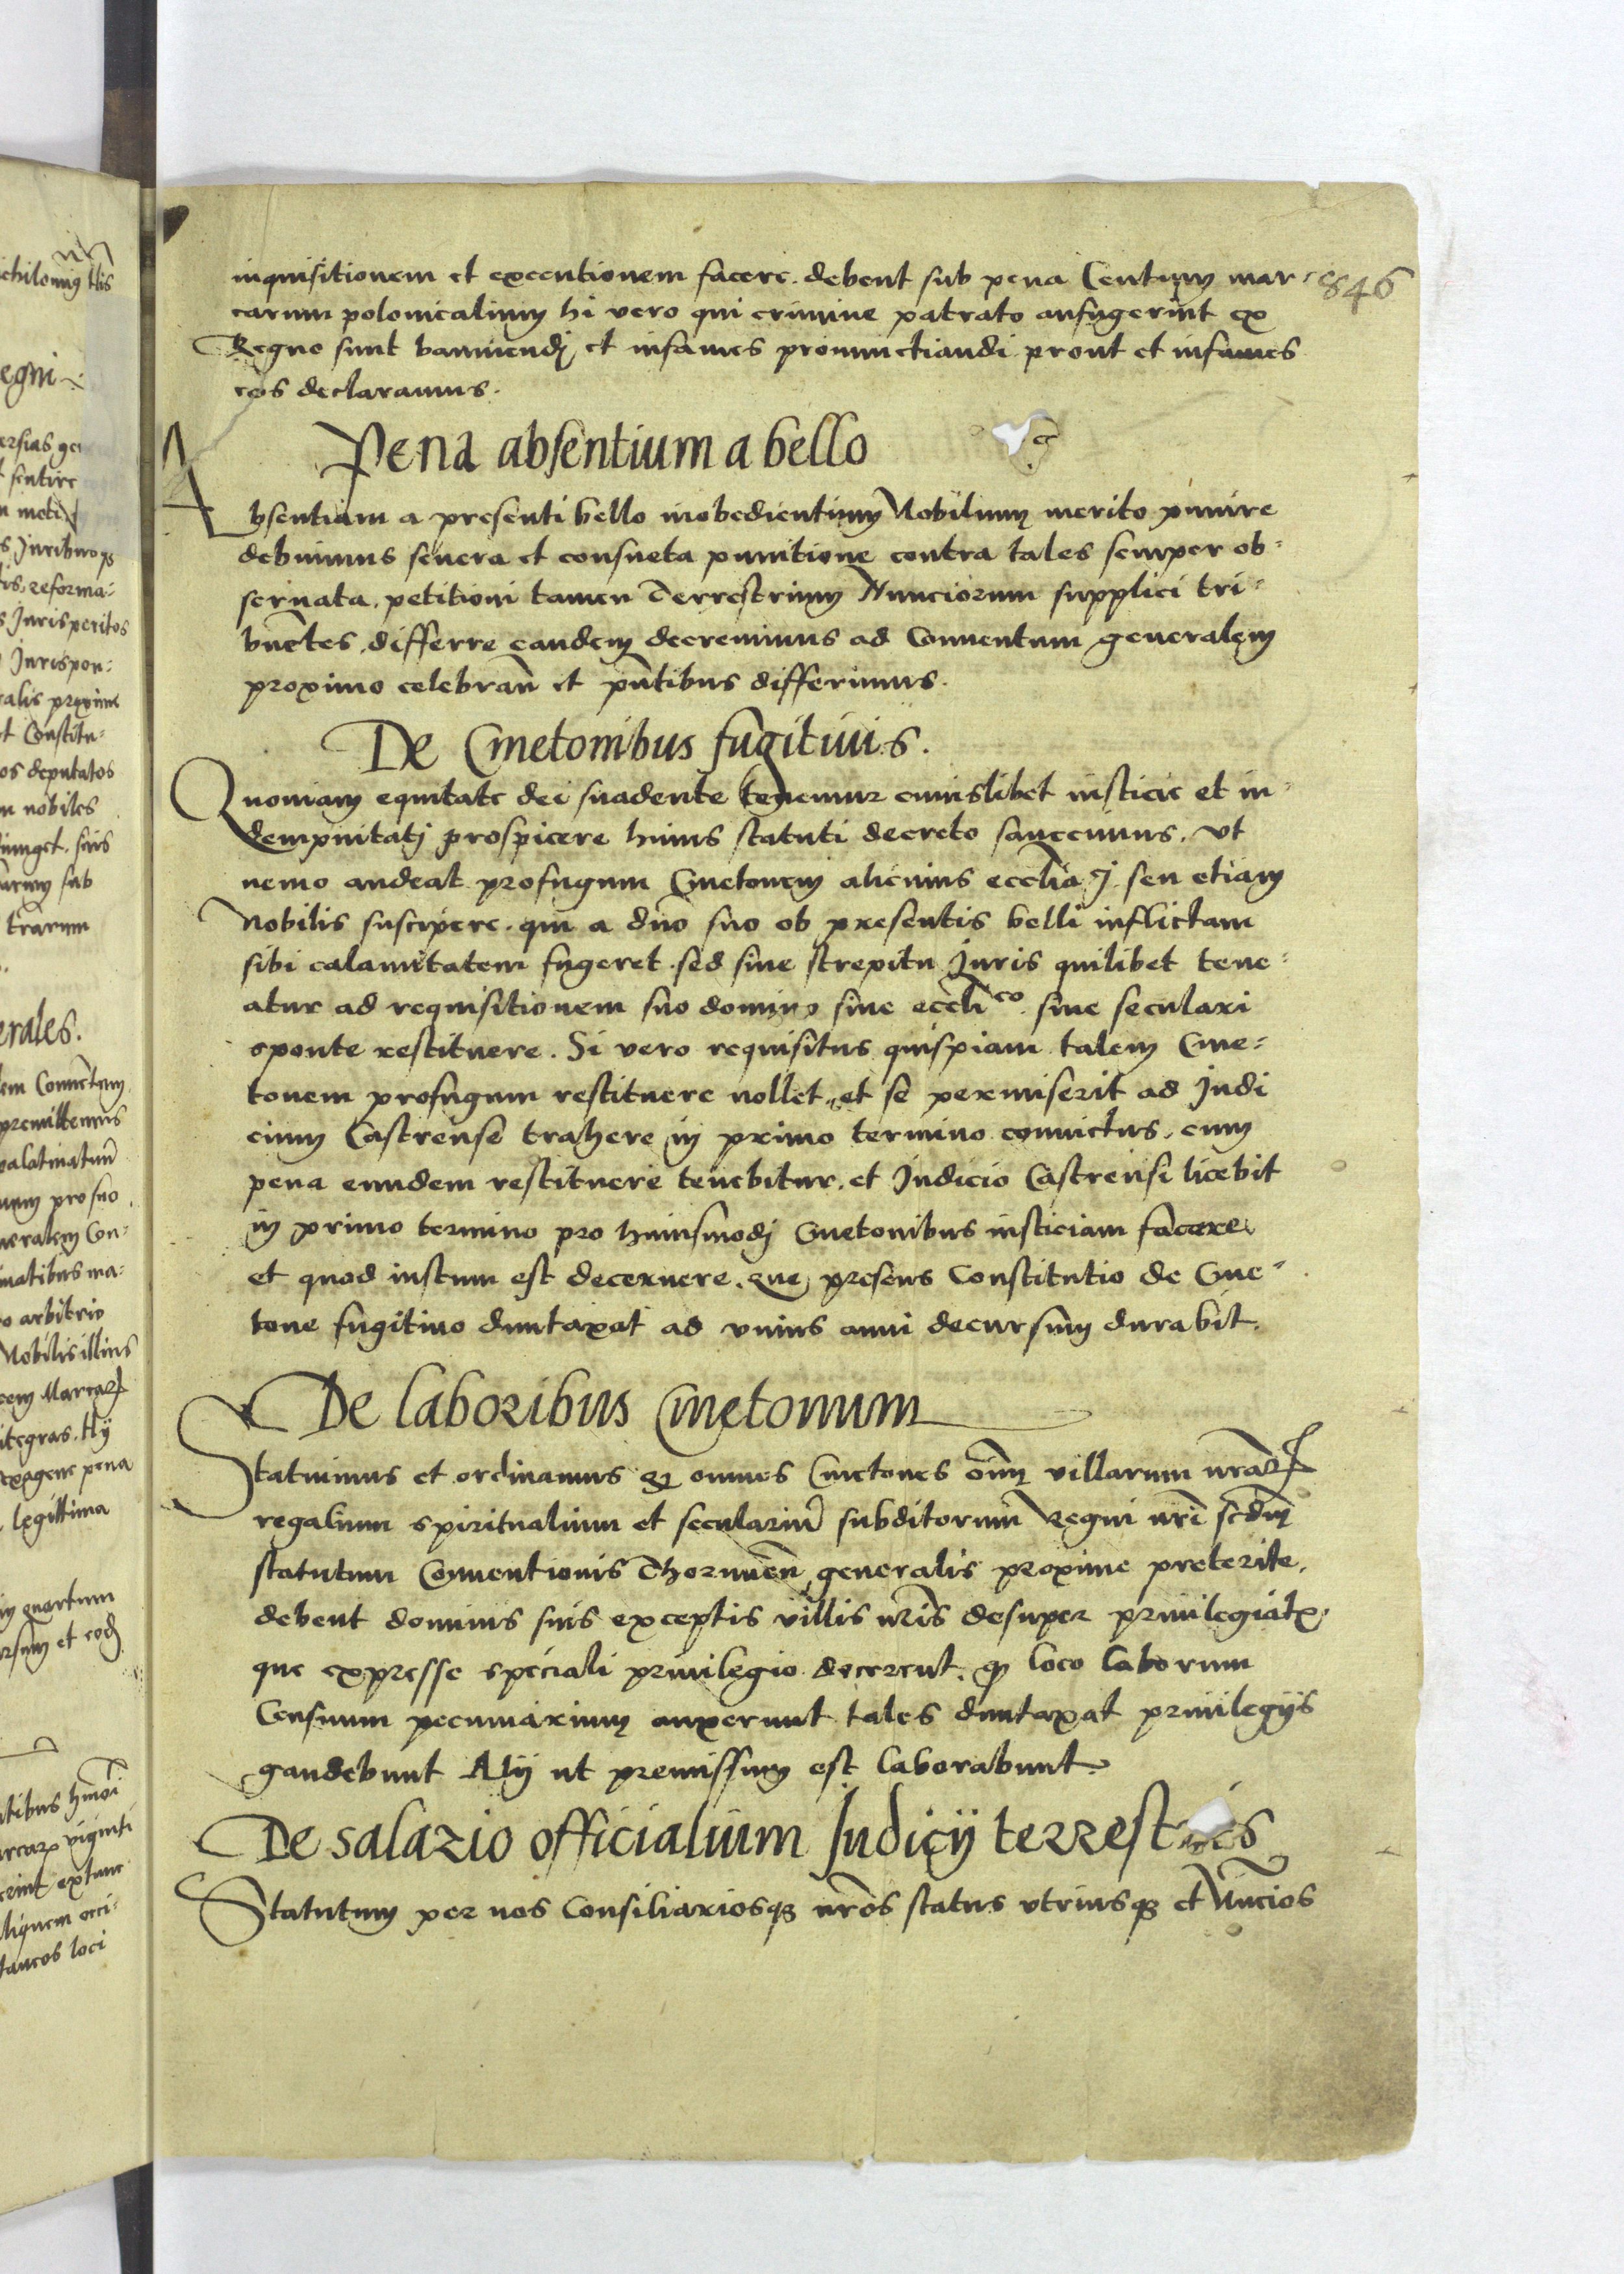 inquisitionem et executionem facere. debent sub pena Centum mar-
846
carum polonicalium hi vero qui crimine patrato aufugerint ex
Regno sunt baniendj et infames pronunctiandi prout et infames
eos declaramus.
Pena absentium a bello
Absentiam a presenti bello inobedientium Nobilium merito punire
debuimus seuera et consueta punitione contra tales semper ob-
seruata. petitioni tamen Terrestrium Nunciorum supplici tri-
buētes, differre eandem decreuimus ad Conuentum generalem
proximo celebrañ et p̃ntibus differimus.
De Cmetonibus fugitiuis.
Quoniam equitate dei suadente tenemur cuiuslibet iusticie et in-
dempnitatj prospicere huius statuti decreto sanccimus. vt
nemo audeat profugum Cmetonem alicuius seu etiam
Nobilis suscipere. qui a dño suo ob presentis belli inflictam
sibi calamitatem fugeret. sed sine strepitu Juris quilibet tene-
atur ad requisitionem suo domino siue ecclīco. siue seculari
sponte restituere. Si vero requisitus quispiam talem Cme-
tonem profugum restituere nollet, et se permiserit ad Judi
cium Castrense trahere in primo termino conuictus, cum
pena eundem restituere tenebitur, et Judicio Castrensi licebit
in primo termino pro huiusmodj Cmetonibus iusticiam facere
et quod iustum est decernere. que presens Constitutio de Cme-
tone fugitiuo duntaxat ad vnius anni decursum durabit.
De laboribus Cmetonum
Statuimus et ordinamus qz omnes Cmetones oīm villarum nr̃arꝝ
regalium spiritualium et seculariū subditorum Regni nr̃i scdm̃
statutum Conuentionis Thoruneñ generalis proxime preterite.
debent dominis suis exceptis villis nr̃is desuper priuilegiatꝭ.
que expresse speciali priuilegio docerent. qꝫ loco laborum
Censuum pecuniarium auxerunt tales duntaxat priuilegijs
gaudebunt Alij ut premissum est laborabunt.
De salario officialium Judicij terrestris
Statutum per nos Consiliariosqꝫ nr̃os status vtriusqꝫ et Nuncios